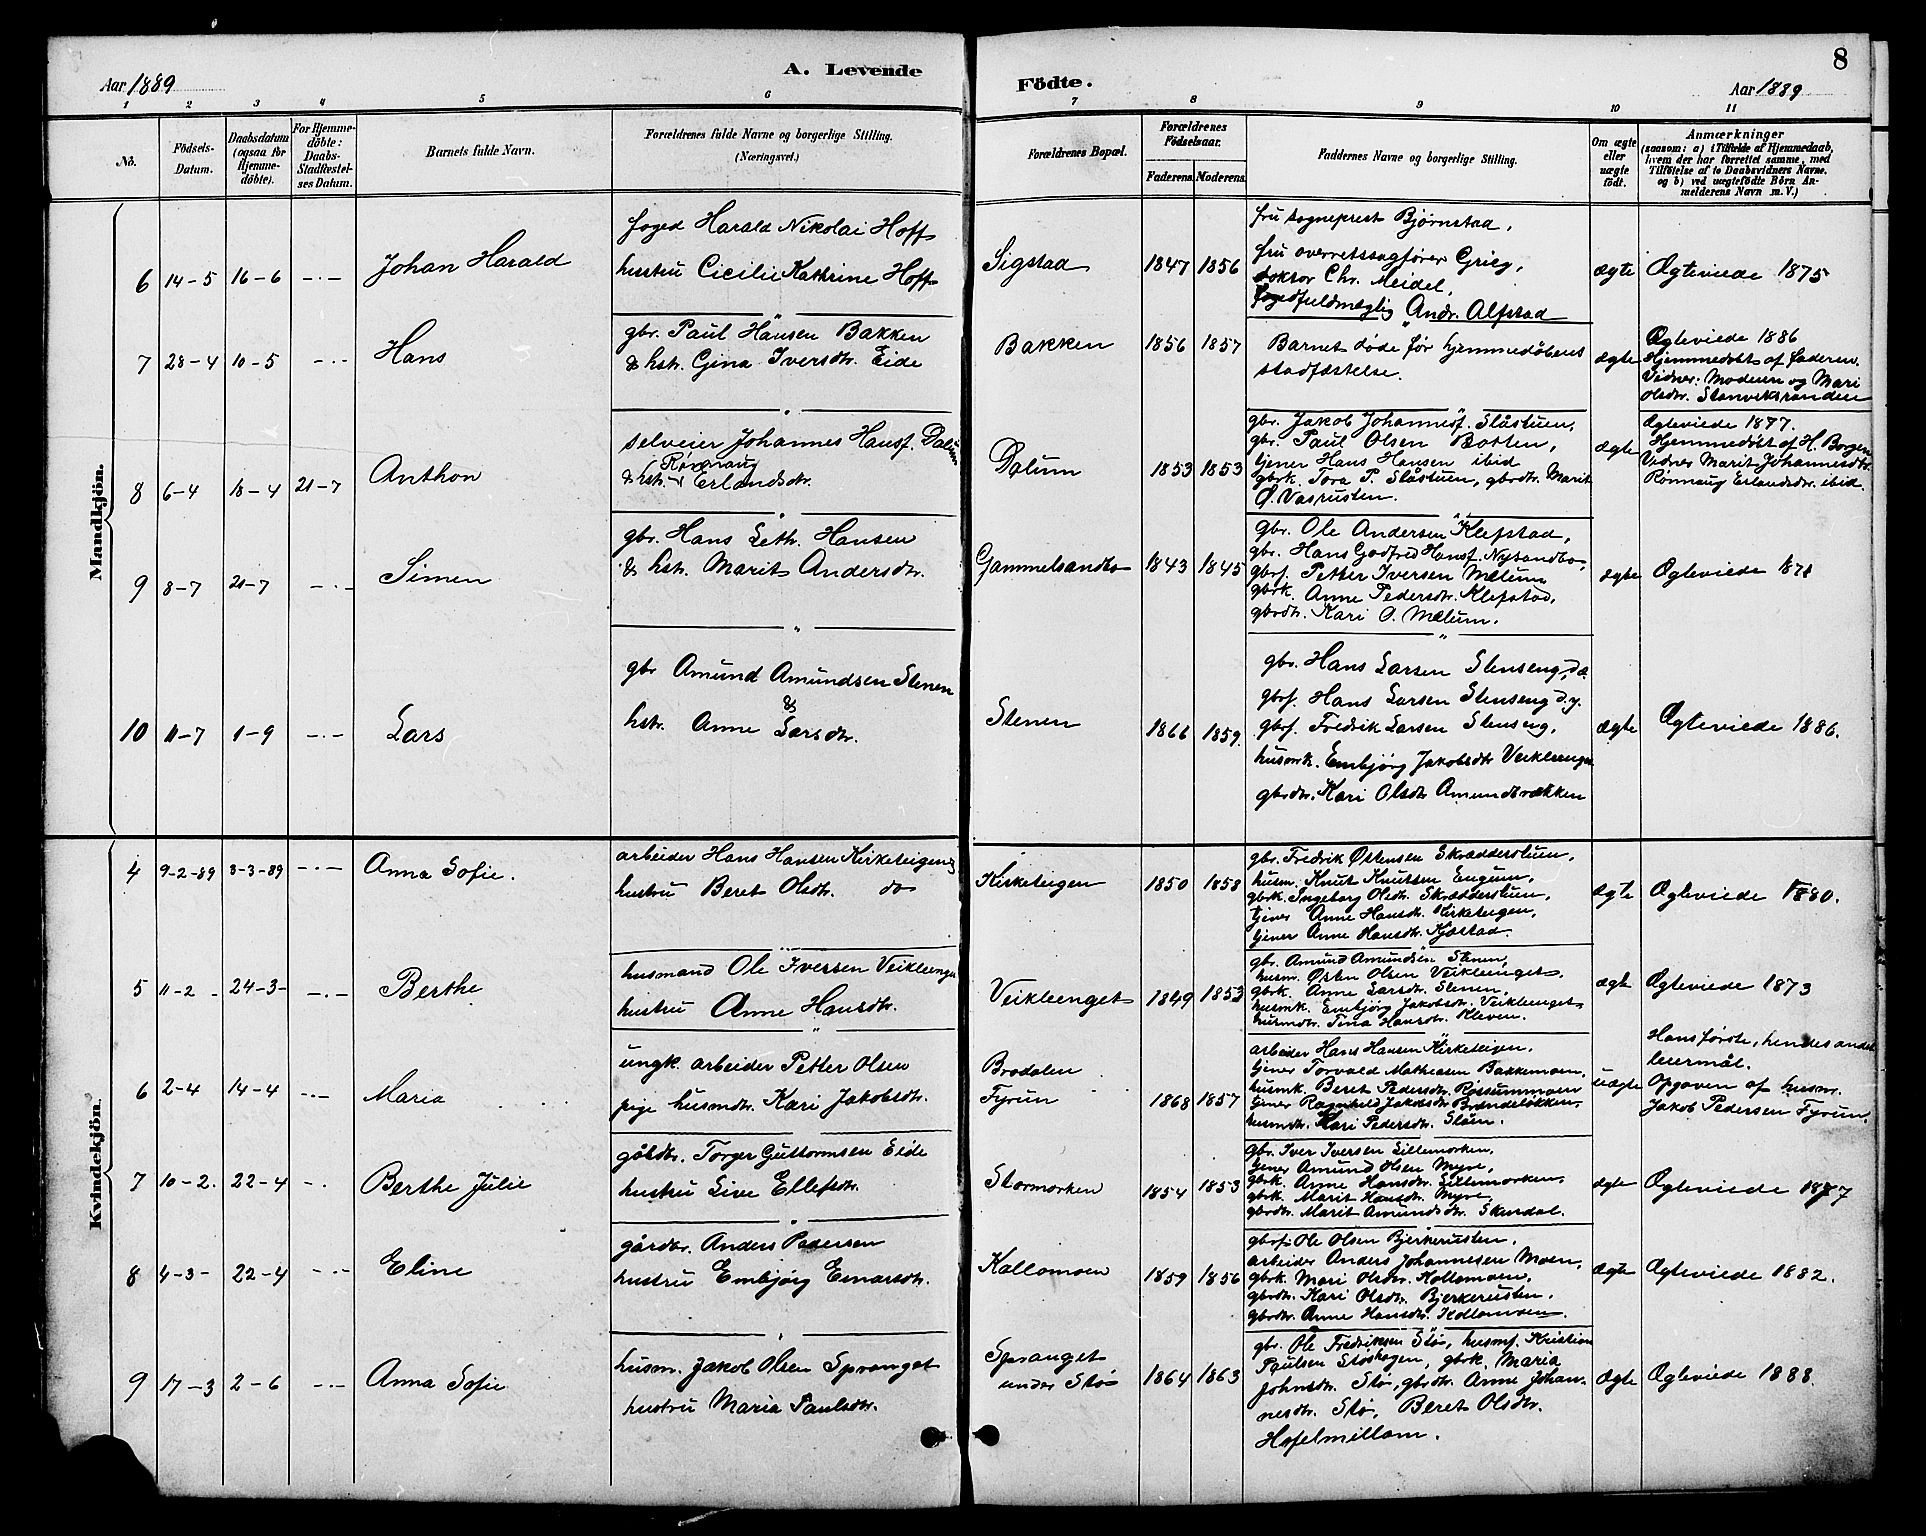 8
Aar 1889
A. Levende
Födte.
Aar 1889
1 2 3 4 5 6 7 8 9 10 11
No.
Födsels-
Datum.
Daabsdatum
(ogsaa for
Hjemme-
döbte).
For Hjemme-
döbte:
Daabs-
Stadfestel-
ses Datum.
Barnets fulde Navn.
Forældrenes fulde Navne og borgerlige Stilling.
(Næringsvei.)
Forældrenes Bopæl.
Forældrenes
Födselsaar.
Faderens. Moderens.
Faddernes Navne og borgerlige Stilling.
Om ægte
eller
uægte
födt.
Anmærkninger
(saasom: a) i Tilfælde af Hjemmedaab,
hvem der har forrettet samme, med
Tilföielse af to Daabsvidners Navne,
og b) ved uægtefödte Börn An-
melderens Navn m. V.)
Mandkjön.
6 14-5 16-6 -.- Johan Harald
foged Harald Nikolai Hoff
hustru Cicilie Kathrine Hoff
Sigstad 1847 1856
fru sogneprest Bjørnstad,
fru overretssagfører Grieg,
doktor Chr. Meidel,
fogedfuldmægtig Andr. Alfstad
ægte Ægteviede 1875
7 28-4 10-5 -.- Hans
gbr. Paul Hansen Bakken
& hstr. Gina Iversdtr. Eide
Bakken 1856 1857
Barnet døde før hjemmedøbens
stadfæstelse.
ægte
Ægteviede 1886
Hjemmedøbt af faderen.
Vidner: Moderen og Mari
Olsdtr. Stenviksranden
8 6-4 18-4 21-7 Anthon
selveier Johannes Hansf. Dalum
& hstr. Rønnaug Erlandsdtr.
Dalum 1853 1853
gbr. Jakob Johannesf. Slåstuen,
gbr. Paul Olsen Botten,
tjener Hans Hansen ibid
gbrk. Tora P. Slåstuen, gbrdtr. Marit
O. Vasrusten.
ægte
Ægteviede 1877.
Hjemmedøbt af H. Borgen
Vidner Marit Johannesdtr.
Rønnaug Erlandsdtr. ibid.
9 8-7 21-7 -.- Simen
gbr. Hans Seth. Hansen
& hstr. Marit Andersdtr.
Gammelsandbo 1843 1845
gbr. Ole Andersen Klefstad,
gbr. Hans Godfred Hansf. Nysandbo,
gbrs. Petter Iversen Mælum
gbrk. Anne Pedersdtr. Klefstad,
gbrdtr. Kari O. Mælum.
ægte Ægteviede 1871
10 11-7 1-9 -.- Lars
gbr Amund Amundsen Stenen
&
hstr. Anne Larsdtr.
Stenen 1866 1859.
gbr. Hans Larsen Stenseng, d.æ.
gbrs. Hans Larsen Stenseng d.y.
gbrs. Fredrik Larsen Stenseng,
husmk. Embjørg Jakobsdtr Veikleenget
gbrdtr. Kari Olsdtr Amundbrækken
ægte Ægteviede 1886.
Kvindekjön.
4 9-2-89 3-3-89 -.- Anna Sofie.
arbeider Hans Hansen Kirketeigen &
hustru Beret Olsdtr. do
Kirketeigen 1850 1858
gbr. Fredrik Østensen Skrædderstuen,
husm. Knut Knutsen Engum,
gbrk. Ingeborg Olsdtr. Skrædderstuen,
tjener Anne Hansdtr. Kirketeigen,
tjener Anne Hansdtr. Kjøstad.
ægte Ægteviede 1880.
5 11-2 24-3 -.- Berthe
husmand Ole Iversen Veikleenget
hustru Anne Hansdtr.
Veikleenget 1849 1853
gbr. Amund Amundsen Stenen,
husm. Østen Olsen Veikleenget,
gbrk. Anne Larsdtr. Stenen,
husmk. Embjørg Jakobsdtr. Veikleenget
husmdtr. Tina Hansdtr. Kleven.
ægte Ægteviede 1873
6 2-4 14-4 -.- Maria
ungk. arbeider Petter Olsen
pige husmdtr. Kari Jakobsdtr.
Brodalen
Fyrun 1868 1857
arbeider Hans Hansen Kirketeigen,
tjener Torvald Mathiasen Bakkemoen,
husmk. Beret Pedersdtr. Rossummoen
tjener Ragnhild Jakobsdtr. Brændeløkken,
husmdtr. Kari Pedersdtr. Sløen.
uægte
Hans første, hendes andet
leiermål.
Opgaven af husm.
Jakob Pedersen Fyrun.
7 10-2. 22-4 -. Berthe Julie
gårdbr. Torger Guttormsen Eide
hustru Live Ellefsdtr.
Stormorken 1854 1853
gbr. Iver Iversen Lillemorken,
tjener Amund Olsen Myre,
gbrk. Anne Hansdtr. Lillemorken,
gbrk. Marit Hansdtr. Myre,
gbrdtr. Marit Amundsdtr. Skurdal.
ægte Ægteviede 1877
8 4-3- 22-4 -.- Eline
gårdbr. Anders Pedersen
hustru Embjørg Einarsdtr.
Kollomoen 1859 1856
gbrs. Ole Olsen Bjerkerusten,
arbeider Anders Johannesen Moen,
gbrk. Mari Olsdtr. Kollomoen,
gbrdtr. Kari Olsdtr. Bjerkerusten,
gbrdtr. Anne Hansdtr. Kollomoen.
ægte Ægteviede 1882.
9 17-3 2-6 -.- Anna Sofie
husm. Jakob Olsen Spranget
hustru Maria Paulsdtr.
Spranget
under Stø 1864 1863
gbr. Ole Fredriksen Stø, husmf. Kristian
Paulsen Støshagen, gbrk. Maria
Johnsdtr. Stø, gbrdtr. Anne Johan-
nesdtr. Stø, Beret Olsdtr.
Hofelmillom.
ægte Ægteviede 1888.